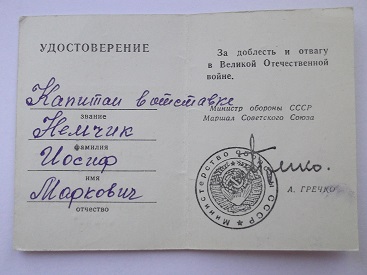 УДОСТОВЕРЕНИЕ
Капитан в отставке
звание
Немчик
фамилия
Иосиф
имя
Маркович
отчество
За доблесть и отвагу
в Великой Отечественной
войне.
Министр обороны СССР
Маршал Советского Союза
А. ГРЕЧКО
Министерство обороны СССР